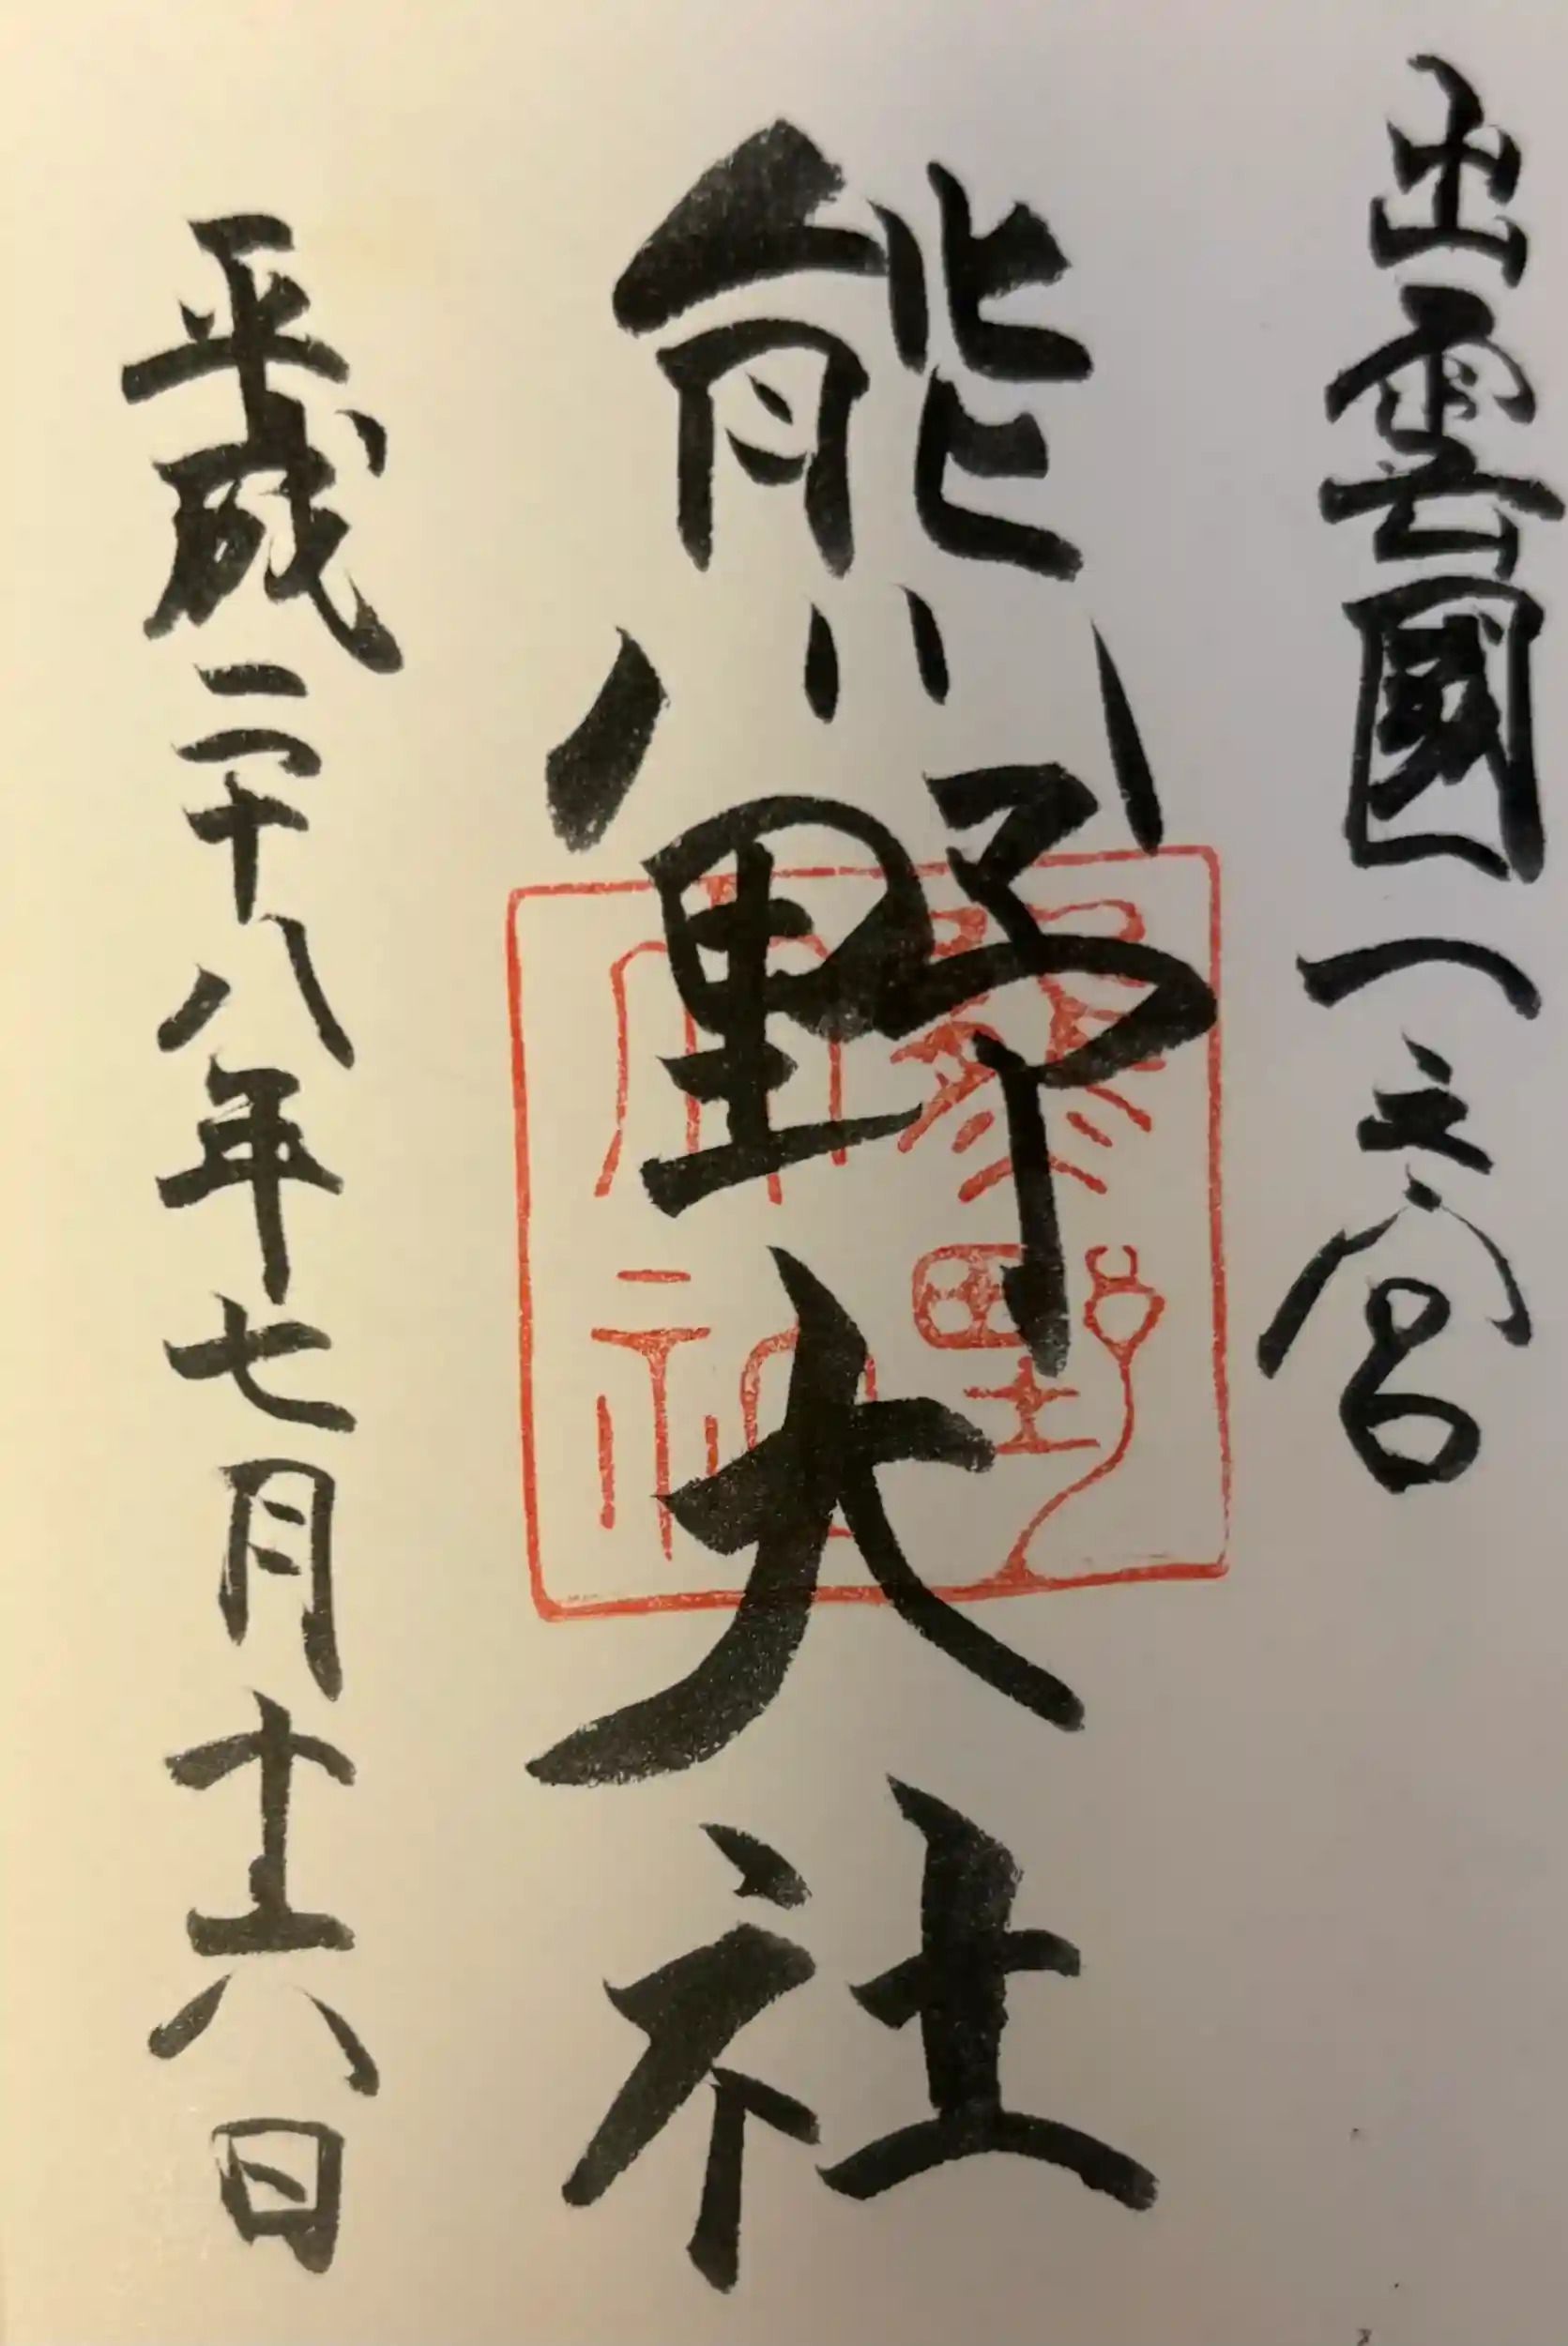 出雲國一之宮
熊野大社
平成二十八年七月十六日
熊野
大社